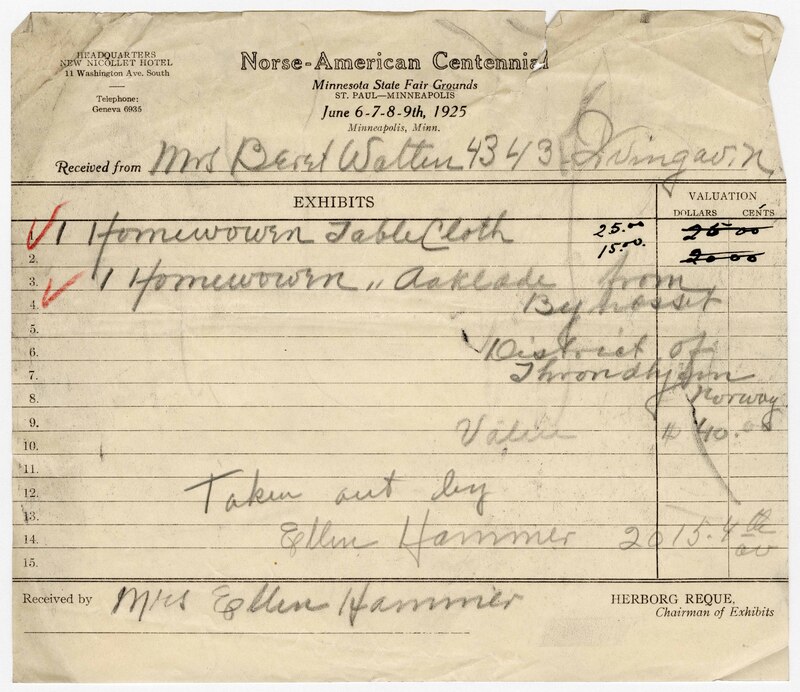 HEADQUARTERS
NEW NICOLLET HOTEL
11 Washington Ave. South
Telephone:
Geneva 6935
Norse-American Centennial
Minnesota State Fair Grounds
ST. PAUL—MINNEAPOLIS
June 6-7-8-9th, 1925
Minneapolis, Minn.
Received from Mrs Beret Watten 4343 av. N.
EXHIBITS
VALUATION
DOLLARS CENTS
1 Homewowen Table Cloth 25.00 25 00
2. 15.00. 20 00
3. 1 Homewowen „ Aaklade from
4. Bynasset
5.
6. District of
7. Throndhjem
8. Norway
9. Value $ 40.00
10.
11.
12. Taken out by
13.
14. Ellen Hammer 2015. 4th av
15.
Received by Mrs Ellen Hammer
HERBORG REQUE,
Chairman of Exhibits